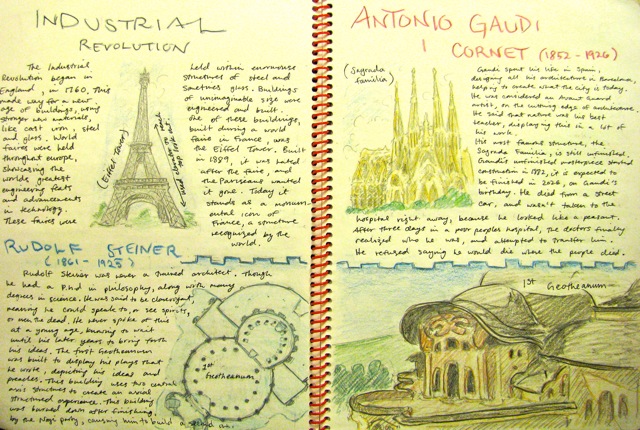 INDUSTRIAL
REVOLUTION
The Industrial
Revolution began in
England, in 1760. This
made way for a new
age of buildings, using
stronger new materials,
like cast iron, steel
and glass. World
faires were held
throughout europe,
showcasing the
worlds greatest
engineering feats
and advancements
in technology.
These faires were
(Eiffel Tower)
held within enormouse
structures of steel and
sometimes glass. Buildings
of unimaginable size were
engineered and built.
One of these buildings,
built during a world
faire in France, was
the Eiffel Tower. Built
in 1889, it was hated
after the faire, and
the Pariseans wanted
it gone. Today it
stands as a monum-
ental icon of
France, a structure
recognized by the
world.
RUDOLF STEINER
(1861 - 1925)
Rudolf Steiner was never a trained architect. Though
he had a P.h.d in philosophy, along with many
degrees in science. He was said to be clairvoyant,
meaning he could speak to, or see spirits,
or even the dead. He never spoke of this
at a young age, knowing to wait
until his later years to bring forth
his ideas. The first Goetheanum
was built to display his plays that
he wrote, depicting his ideas and
preaches. This building uses two central
axis structures to create an
structured experience. This building
was burned down after finishing,
by the Nazi party, causing him to build a second one.
1st
Goetheanum
ANTONIO GAUDI
I CORNET (1852 - 1926)
(Sagrada
familia)
Gaudi spent his life in Spain,
designing all his architecture in Barcelona,
helping to create what the city is today.
He was considered an Avant Guard
artist, on the cutting edge of architecture.
He said that nature was his best
teacher, displaying this in a lot of
his work.
His most famous structure, the
Sagrada Familia, is still unfinished.
Gaudi's unfinished masterpiece started
construction in 1882, it is expected to
be finished in 2026, on Gaudi's
birthday. He died from a street
car, and wasn't taken to the
hospital right away, because he looked like a peasant.
After three days in a poor peoples hospital, the doctors finally
realized who he was, and attempted to transfer him.
He refused saying he would die where the people died.
1st Goetheanum